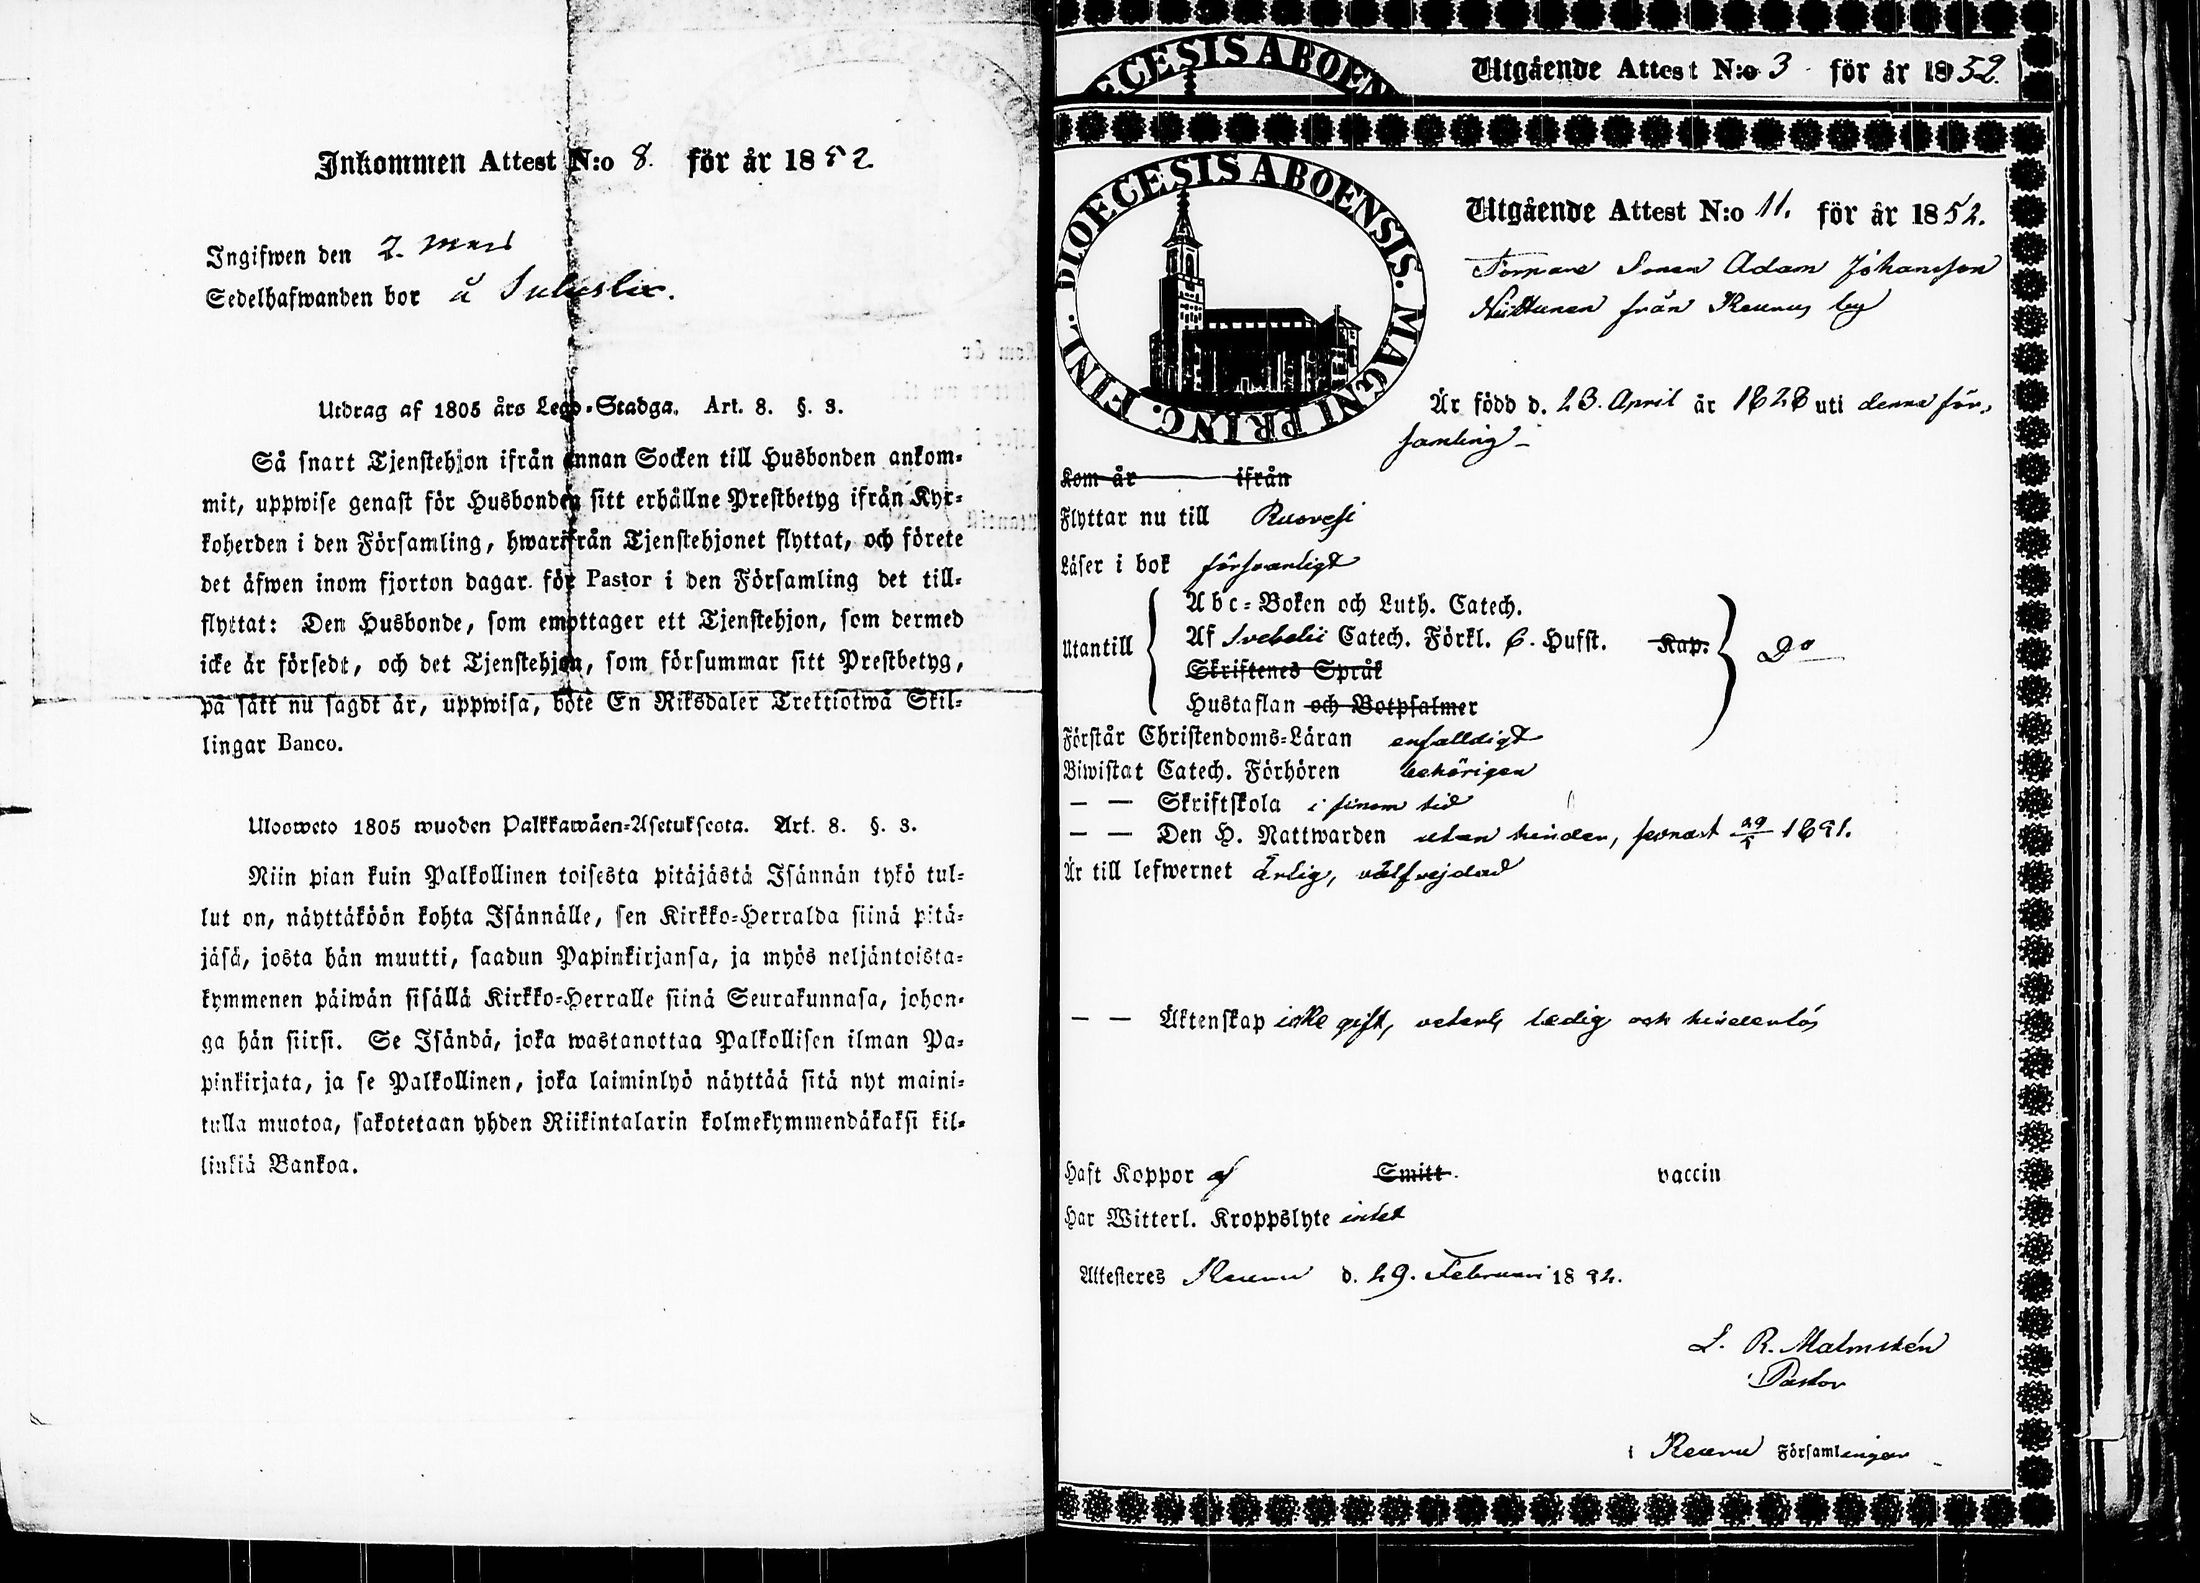 Inkommen Attest N:o 8. för år 1852
Ingifwen den 2. Mars
Sedelhafwanden bor å
Utdrag af 1805 års Lego-Stadga. Art. 8. §. 3.
Så snart Tjenstehjon ifrån annan Socken till Husbonden ankom-
mit, uppwise genast för Husbonden sitt erhållne Prestbetyg ifrån Kyr-
koherden i den Församling, hwarifrån Tjenstehjonet flyttat, och förete
det äfwen inom fjorton dagar för Pastor i den Församling det till-
flyttat: Den Husbonde, som emottager ett Tjenstehjon, som dermed
icke är försedt, och det Tjenstehjon, som försummar sitt Prestbetyg,
på sätt nu sagdt är, uppwisa, böte En Riksdaler Trettiotwå Skil-
lingar Banco.
Ulosweto 1805 wuoden Palkkawäen-Asetuksesta. Art. 8. §. 3.
Niin pian kuin Palkollinen toisesta pitäjästä Isännän tykö tul-
lut on, näyttäköön kohta Isännälle, sen Kirkko-Herralda siinä pitä-
jäsä, josta hän muutti, saadun Papinkirjansa, ja myös neljäntoista-
kymmenen päiwän sisällä Kirkko-Herralle siinä Seurakunnasa, johon-
ga hän siirsi. Se Isändä, joka wastanottaa Palkollisen ilman Pa-
pinkirjata, ja se Palkollinen, joka laiminlyö näyttää sitä nyt maini-
tulla muotoa, sakotetaan yhden Riikintalarin kolmekymmendäkaksi kil-
linkiä Bankoa.
ECESIS ABOEN
Utgående Attest N:o 3 för år 1852.
DIOECESIS ABOENSIS. MAGNI PRINC. FINL.
Utgående Attest N:o 11. för år 1852.
Torpare Sonen Adam Johansson
från Keuru by
Är född d. 23. April år 1828 uti denna för-
samling
Kom år ifrån
Flyttar nu till Ruovesi
Läser i bok försvarligt
Abc-Boken och Luth. Catech.
Utantill Af Svebelii Catech. Förkl. 6. Hufst. Kap. Do
Skriftenes Språk
Hustaflan och Botpsalmer
Förstår Christendoms-Läran enfalldigt
Biwistat Catech. Förhören behörigen
— — Skriftskola i sinom tid
— — Den H. Nattwarden utan hinder, senast 1851.
Är till lefwernet ärlig, välfrejdad
— — Äktenskap icke gift, ledig och hinderlös
Haft Koppor af Smitt. vaccin
Har Witterl. Kroppslyte intet
Attesteres Keuru d. 29. Februari 1852.
L. R. Malmstén
Pastor
i Keuru Församlingen